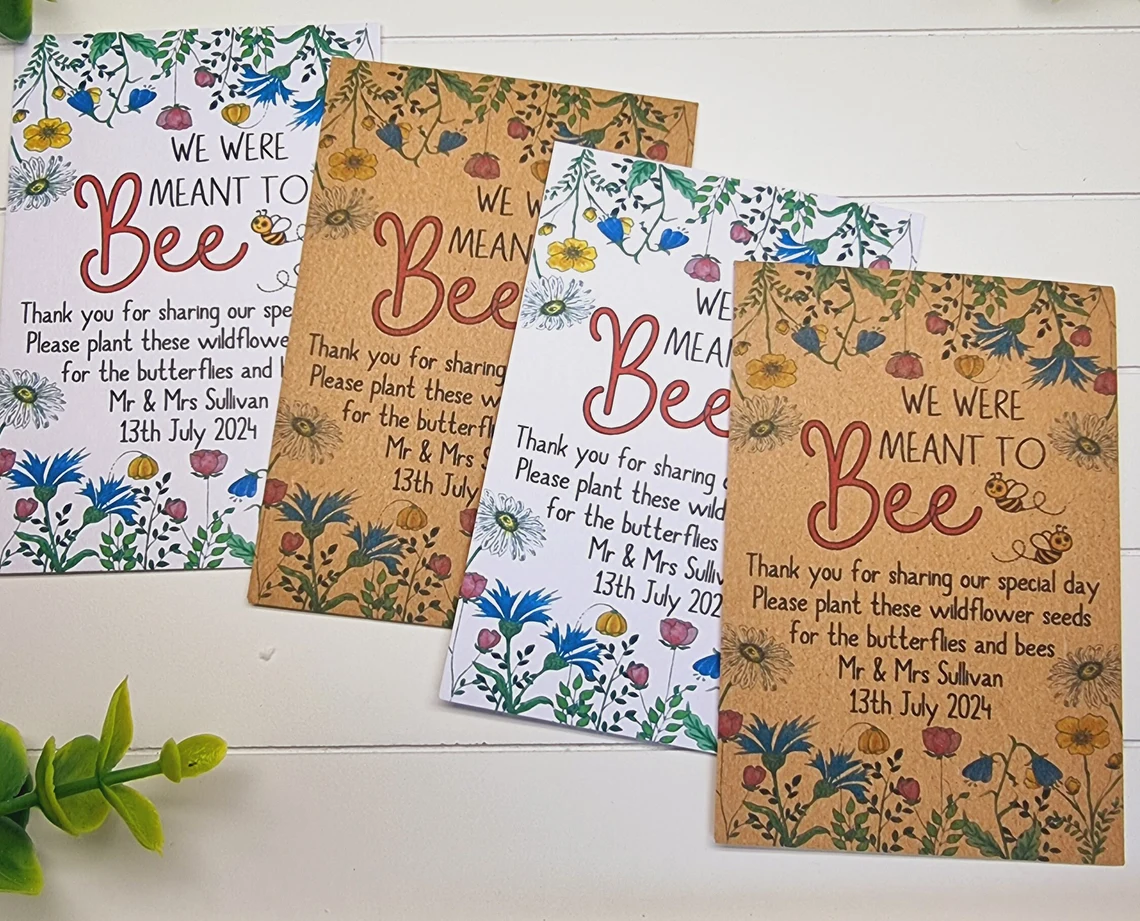 WE WERE
MEANT TO
Bee
Thank you for sharing our spe
Please plant these wildflowe
for the butterflies and
Mr & Mrs Sullivan
13th July 2024
WE W
MEAN
Bee
Thank you for sharing
Please plant these w
for the butterfl
Mr & Mrs
13th July
WE
MEA
Bee
Thank you for sharing
Please plant these wild
for the butterflies
Mr & Mrs Sulliv
13th July 202
WE WERE
MEANT TO
Bee
Thank you for sharing our special day
Please plant these wildflower seeds
for the butterflies and bees
Mr & Mrs Sullivan
13th July 2024